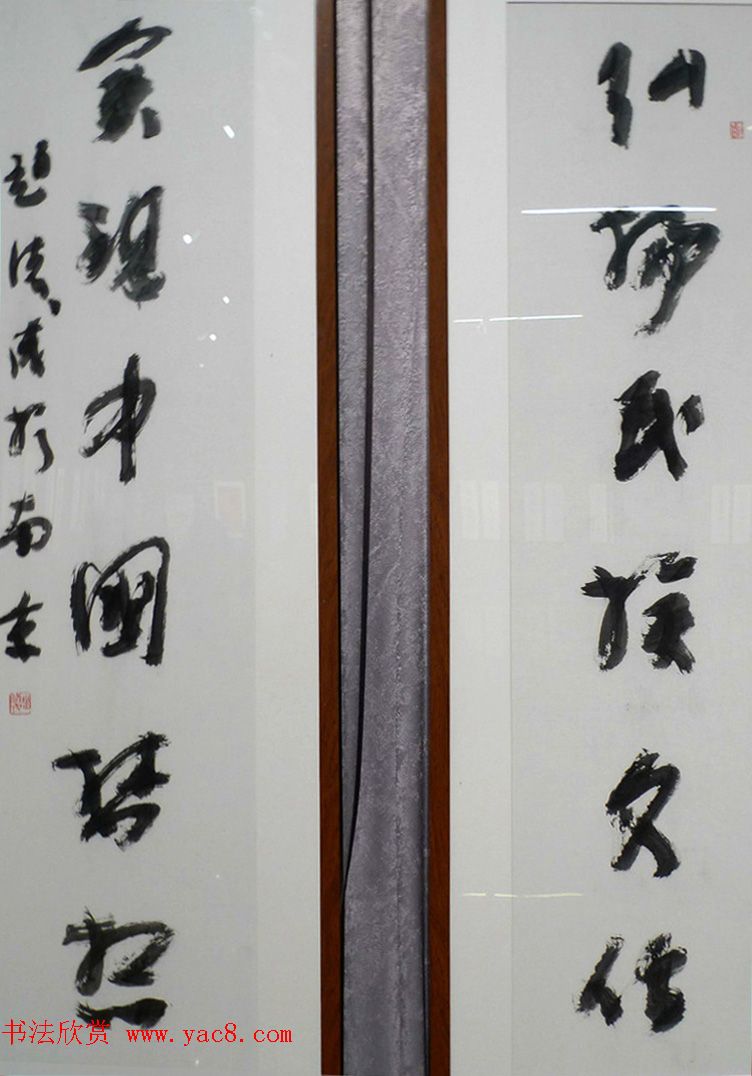 弘扬民族文化
实现中国梦想
赵清涛于南京
书法欣赏 www.yac8.com